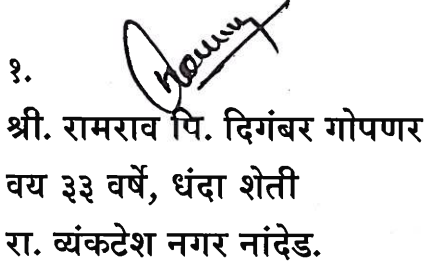 १.
श्री. रामराव पि. दिगंबर गोपणर
वय ३३ वर्षे, धंदा शेती
रा. व्यंकटेश नगर नांदेड.